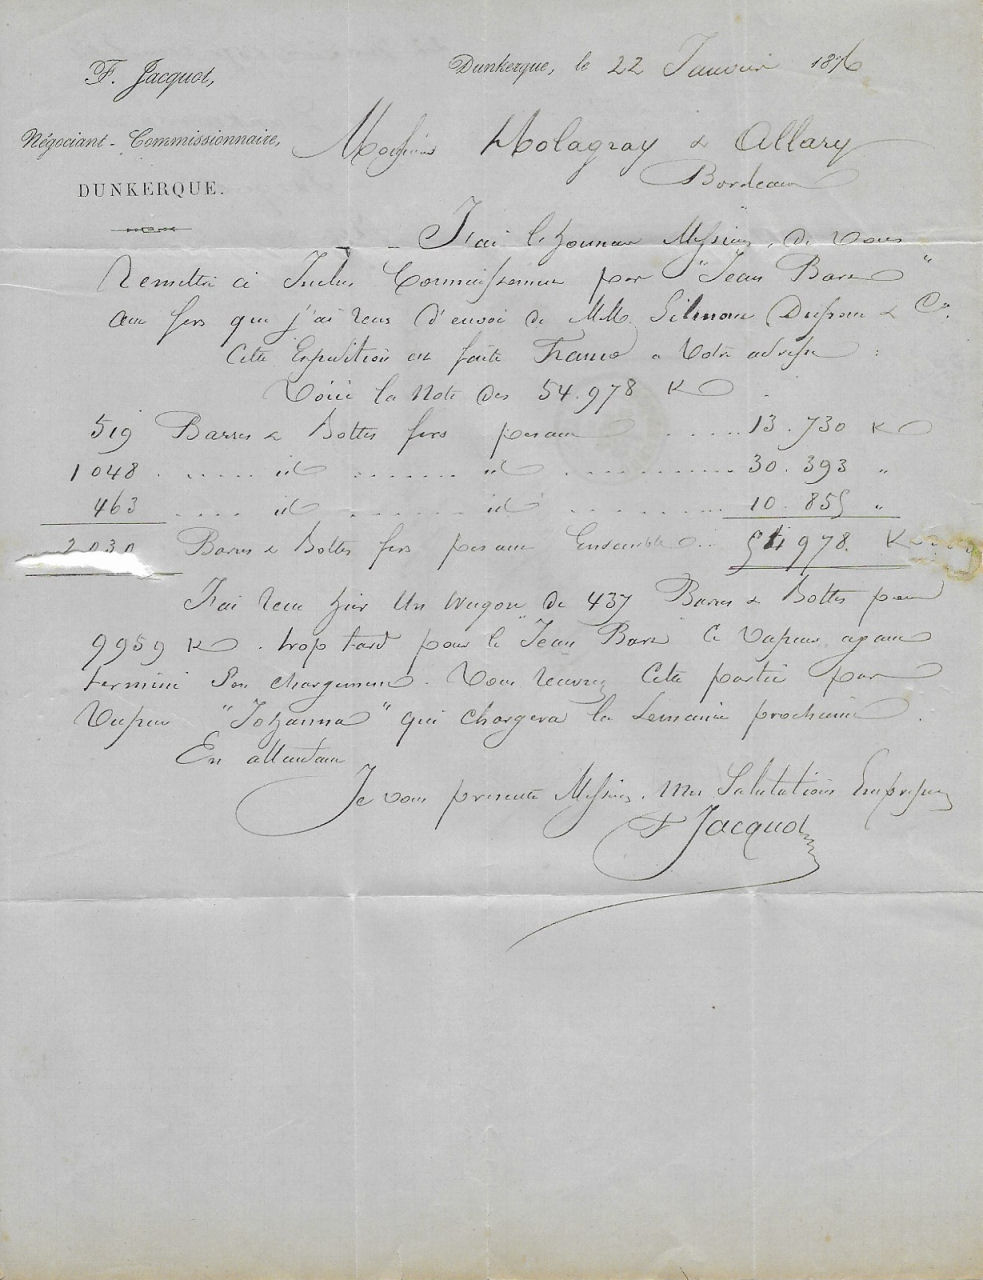 F. Jacquot,
Négociant - Commissionnaire,
DUNKERQUE.
Dunkerque, le 22 Janvier 1876
Messieurs Molagray & Allary
Bordeaux
J'ai l'honneur Messieurs, de vous
remettre ci Inclus Connaissement par "Jean Bart"
aux fers que j'ai reçus d'envoi de MM. Dupont & Cie.
Cette Expédition est faite Franco à votre adresse :
Voici la Note des 54.978 K
519 Barres & Bottes fers pesant ..... 13.730 K
1048 ...... id ....... id ........... 30.393 "
463 .... id ..... id ........ 10.855 "
2030 Barres & Bottes fers pesant Ensemble .. 54 978. K
J'ai reçu hier Un Wagon de 437 Barres & Bottes pesant
9959 K. trop tard pour le "Jean Bart" Ce Vapeur ayant
terminé Son chargement. Vous recevrez Cette partie par
Vapeur "Johanna" qui chargera la Semaine prochaine.
En attendant
Je vous présente Messieurs, mes Salutations Empressées
F Jacquot